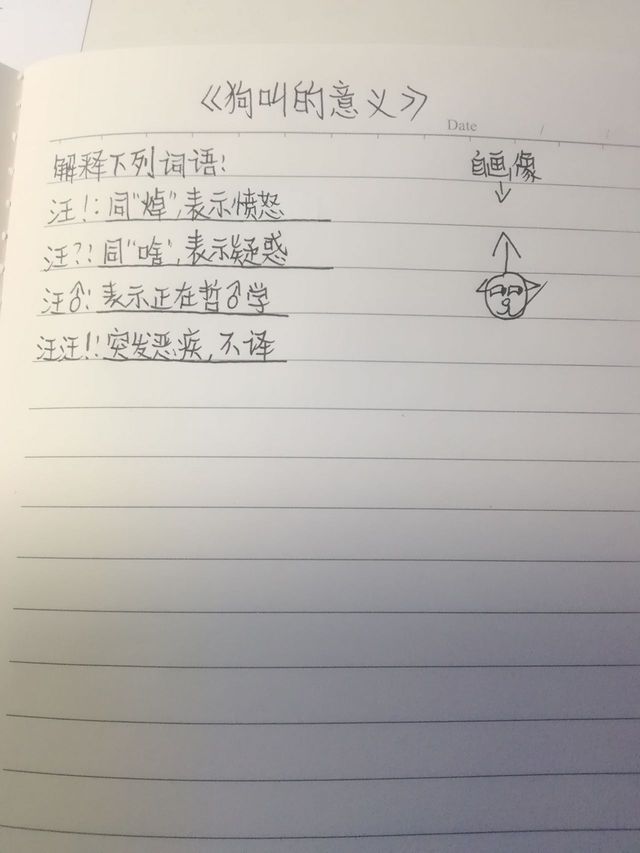 《狗叫的意义》
Date / /
解释下列词语:
自画像
汪!: 同"焯",表示愤怒
汪?: 同"啥",表示疑惑
汪♂: 表示正在哲♂学
汪汪!: 突发恶疾,不译